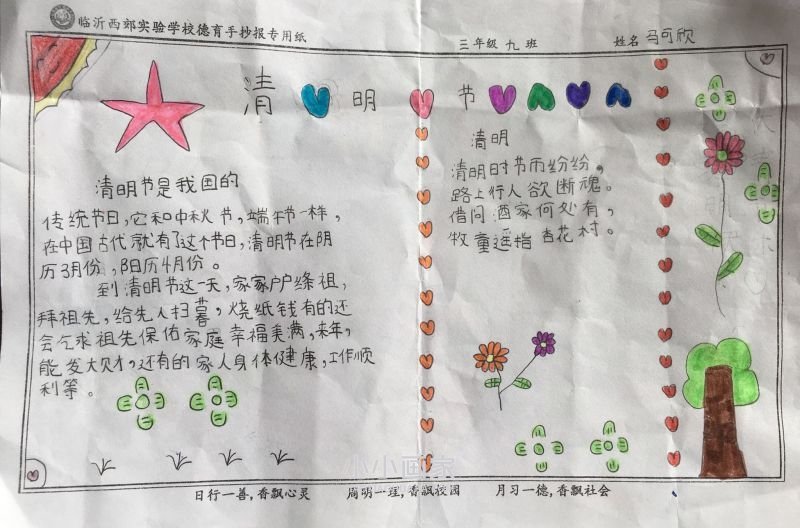 临沂西郊实验学校德育手抄报专用纸
三年级 九班
姓名 马可欣
清明节
清明节是我国的
传统节日，它和中秋节，端午节一样，
在中国古代就有了这个节日，清明节在阴
历3月份，阳历4月份。
到清明节这一天，家家户户缔祖，
拜祖先，给先人扫暮，烧纸钱有的还
会乞求祖先保佑家庭幸福美满，来年，
能发大财，还有的家人身体健康，工作顺
利等。
清明
清明时节雨纷纷，
路上行人欲断魂。
借问酒家何处有，
牧童遥指杏花村。
小小画家
日行一善，香飘心灵 周明一理，香飘校园 月习一德，香飘社会